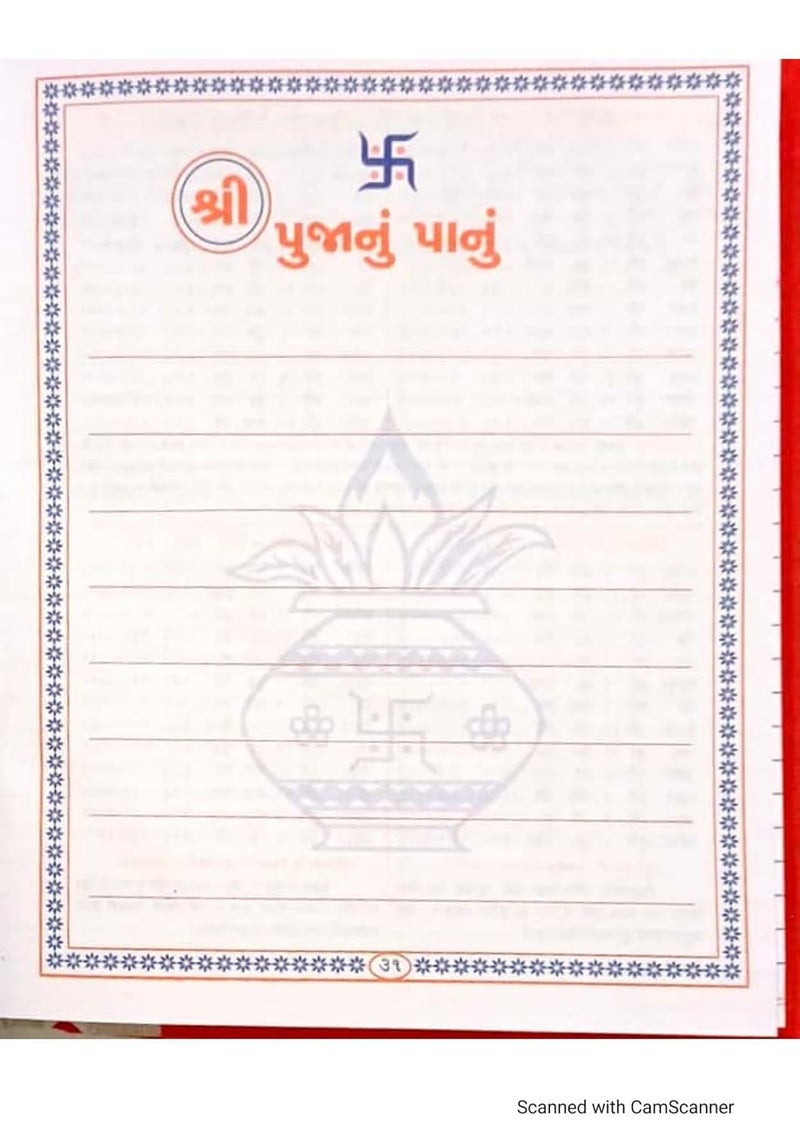 શ્રી
પુજાનું પાનું
૩૧
Scanned with CamScanner